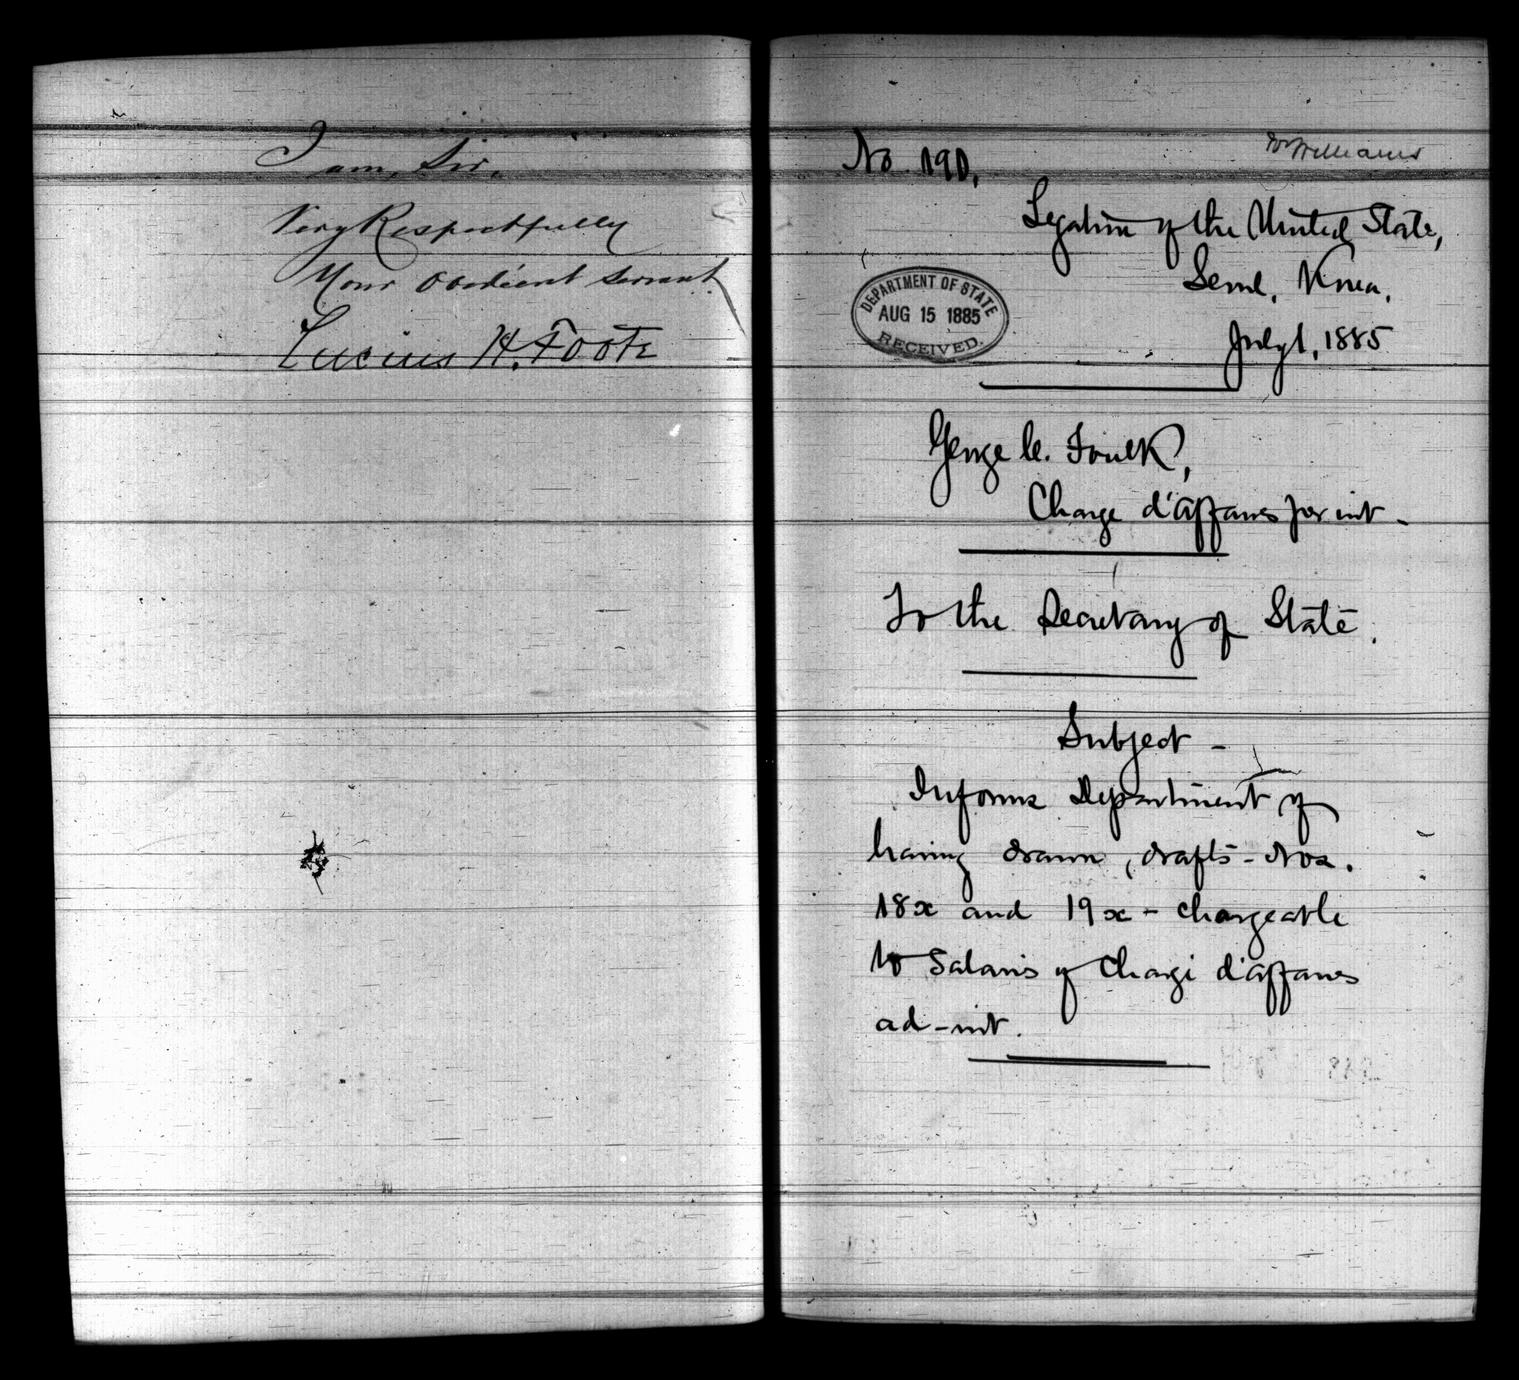 I am, Sir,
Very Respectfully
Your obedient servant
Lucius H. Foote
No. 191.
Legation of the United States,
Seoul, Korea.
DEPARTMENT OF STATE
AUG 15 1885
RECEIVED.
July 1, 1885
George C. Foulk,
Charge d'affaires per int -
To the Secretary of State.
Subject -
Informs Department of
having drawn, drafts - Nos.
18x and 19x - chargeable
to Salaries of Chargé d'affaires
ad-int.